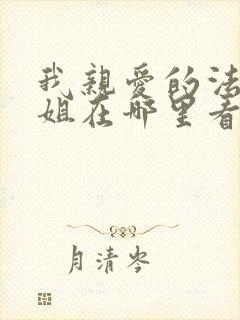 我親愛的法
姐在哪里看
月清岑